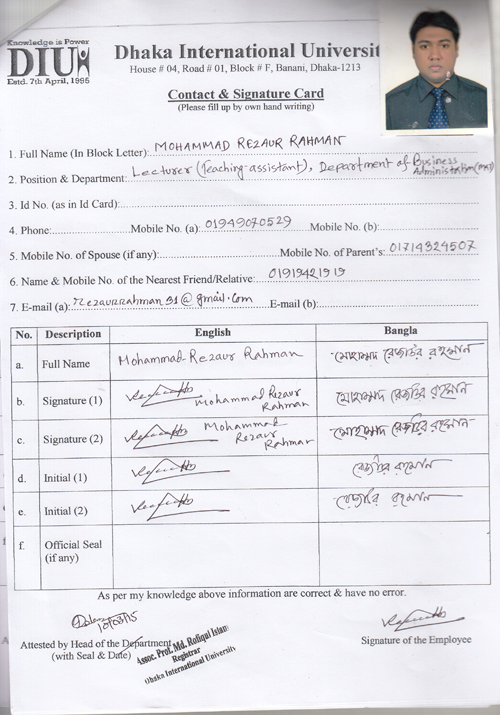 Knowledge is Power
DIU
Estd. 7th April, 1995
Dhaka International Universit
House # 04, Road # 01, Block # F, Banani, Dhaka-1213
Contact & Signature Card
(Please fill up by own hand writing)
1. Full Name (In Block Letter): MOHAMMAD REZAUR RAHMAN
2. Position & Department: Lecturer (Teaching-assistant), Department of Business Administration
3. Id No. (as in Id Card):
4. Phone: Mobile No. (a): 01949070529 Mobile No. (b):
5. Mobile No. of Spouse (if any): Mobile No. of Parent's: 01714324507
6. Name & Mobile No. of the Nearest Friend/Relative: 01919421919
7. E-mail (a): rezaurrahman31@gmail.com E-mail (b):
No. Description English Bangla
a. Full Name Mohammad Rezaur Rahman মোহাম্মদ রেজাউর রহমান
b. Signature (1) Mohammad Rezaur Rahman মোহাম্মদ রেজাউর রহমান
c. Signature (2) Mohammad Rezaur Rahman মোহাম্মদ রেজাউর রহমান
d. Initial (1) রেজাউর রহমান
e. Initial (2) রেজাউর রহমান
f. Official Seal (if any)
As per my knowledge above information are correct & have no error.
10/03/15
Attested by Head of the Department
(with Seal & Date)
Assoc. Prof. Md. Rofiqul Islam
Registrar
Dhaka International University
Signature of the Employee